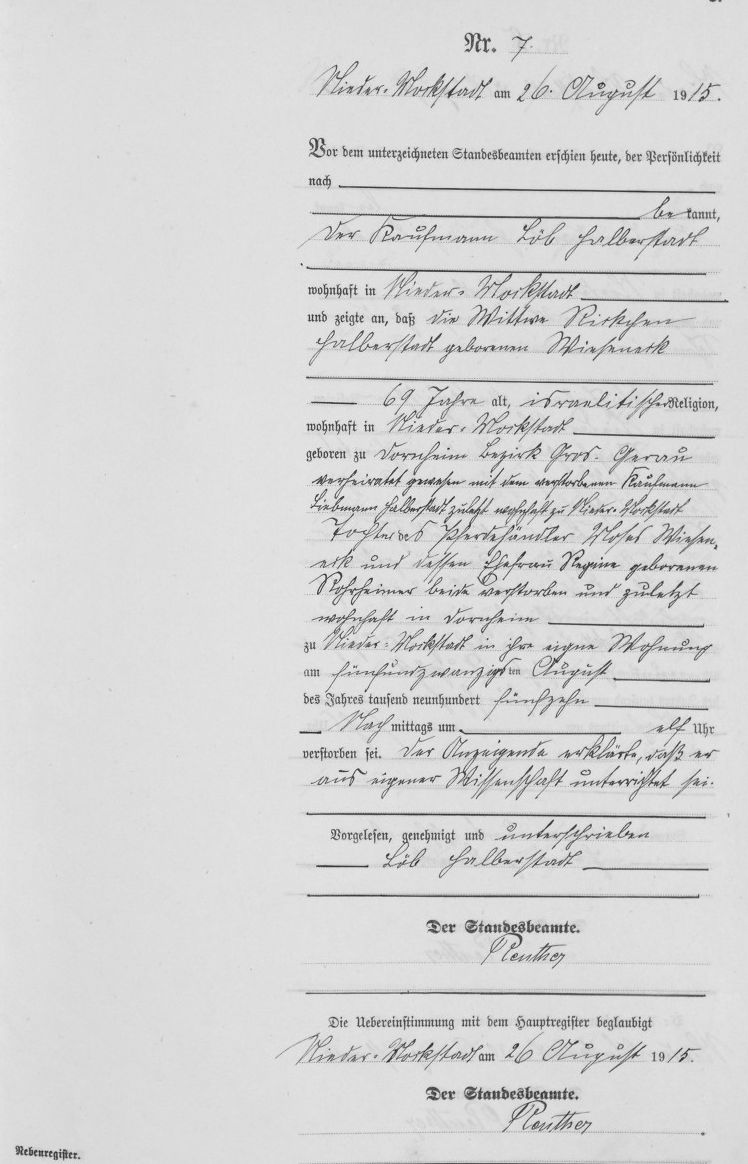 Nr. 7.
Nieder-Mockstadt am 26. August 1915.
Vor dem unterzeichneten Standesbeamten erschien heute, der Persönlichkeit
nach
bekannt,
der Kaufmann Löb Halberstadt
wohnhaft in Nieder-Mockstadt
und zeigte an, daß die Wittwe Rickchen
Halberstadt geborenen Wieseneck
69 Jahre alt, israelitischer Religion,
wohnhaft in Nieder-Mockstadt
geboren zu Dornheim Bezirk Gros-Gerau
verheiratet gewesen mit dem verstorbenen Kaufmann
Liebmann Halberstadt zuletzt wohnhaft zu Nieder-Mockstadt
Tochter des Pferdehändler Moses Wiesen-
eck und dessen Ehefrau Regine geborenen
Rohrheimer beide verstorben und zuletzt
wohnhaft in Dornheim
zu Nieder-Mockstadt in ihre eigne Wohnung
am fünfundzwanzigsten August
des Jahres tausend neunhundert fünfzehn
Nachmittags um elf Uhr
verstorben sei. Der Anzeigende erklärte, daß er
aus eigener Wissenschaft unterrichtet sei.
Vorgelesen, genehmigt und unterschrieben
Löb Halberstadt
Der Standesbeamte.
Reuther
Die Uebereinstimmung mit dem Hauptregister beglaubigt
Nieder-Mockstadt am 26 August 1915.
Der Standesbeamte.
Reuther
Nebenregister.